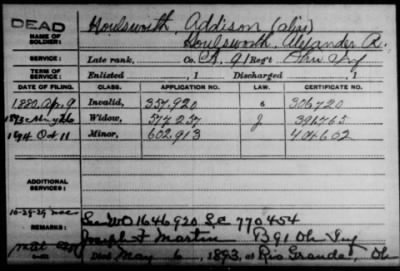 DEAD
NAME OF SOLDIER: Houlsworth, Addison (alias)
Houlsworth, Alexander A.
SERVICE: Late rank, Co. A, 91 Reg't Ohio Inf
TERM OF SERVICE: Enlisted , 1 Discharged , 1
DATE OF FILING. CLASS. APPLICATION NO. LAW. CERTIFICATE NO.
1880, Apr. 9 Invalid, 357,920 6 306720
1893 Widow, 577257 J 396765
1894 Oct 11 Minor, 602,913 404602
ADDITIONAL SERVICES:
10-29-29
REMARKS: See WO 1646920 S.C. 770454
Joseph F Martin B 91 Oh Inf
Died May 6, 1893, at Rio Grande, Oh